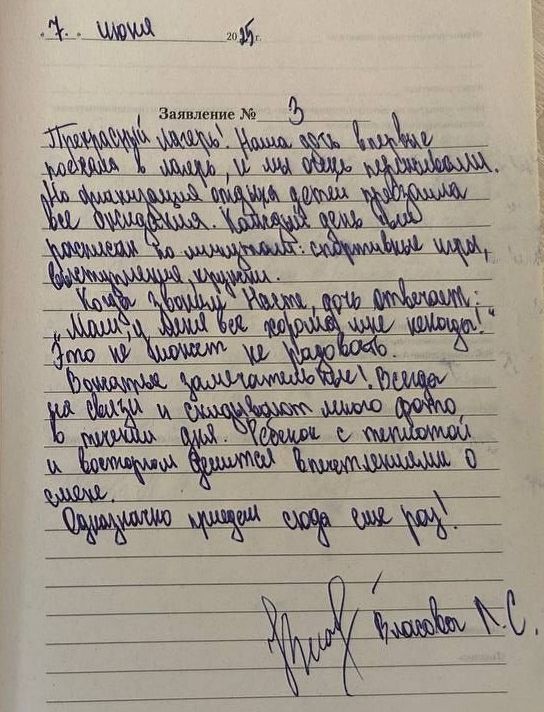 "7." июня 2025г.
Заявление № 3
Прекрасный лагерь! Наша дочь впервые
поехала в лагерь, и мы очень переживали.
Но организация отдыха детей превзошла
все ожидания. Каждый день был
расписан по минутам: спортивные игры,
выступления, кружки.
Когда звоним Насте, дочь отвечает:
"Мам, у меня все хорошо, мне некогда!"
Это не может не радовать.
Вожатые замечательные! Всегда
на связи и скидывают много фото
в течении дня. Ребенок с теплотой
и восторгом делится впечатлениями о
смене.
Однозначно приедем сюда еще раз!
Власовы Л. С.